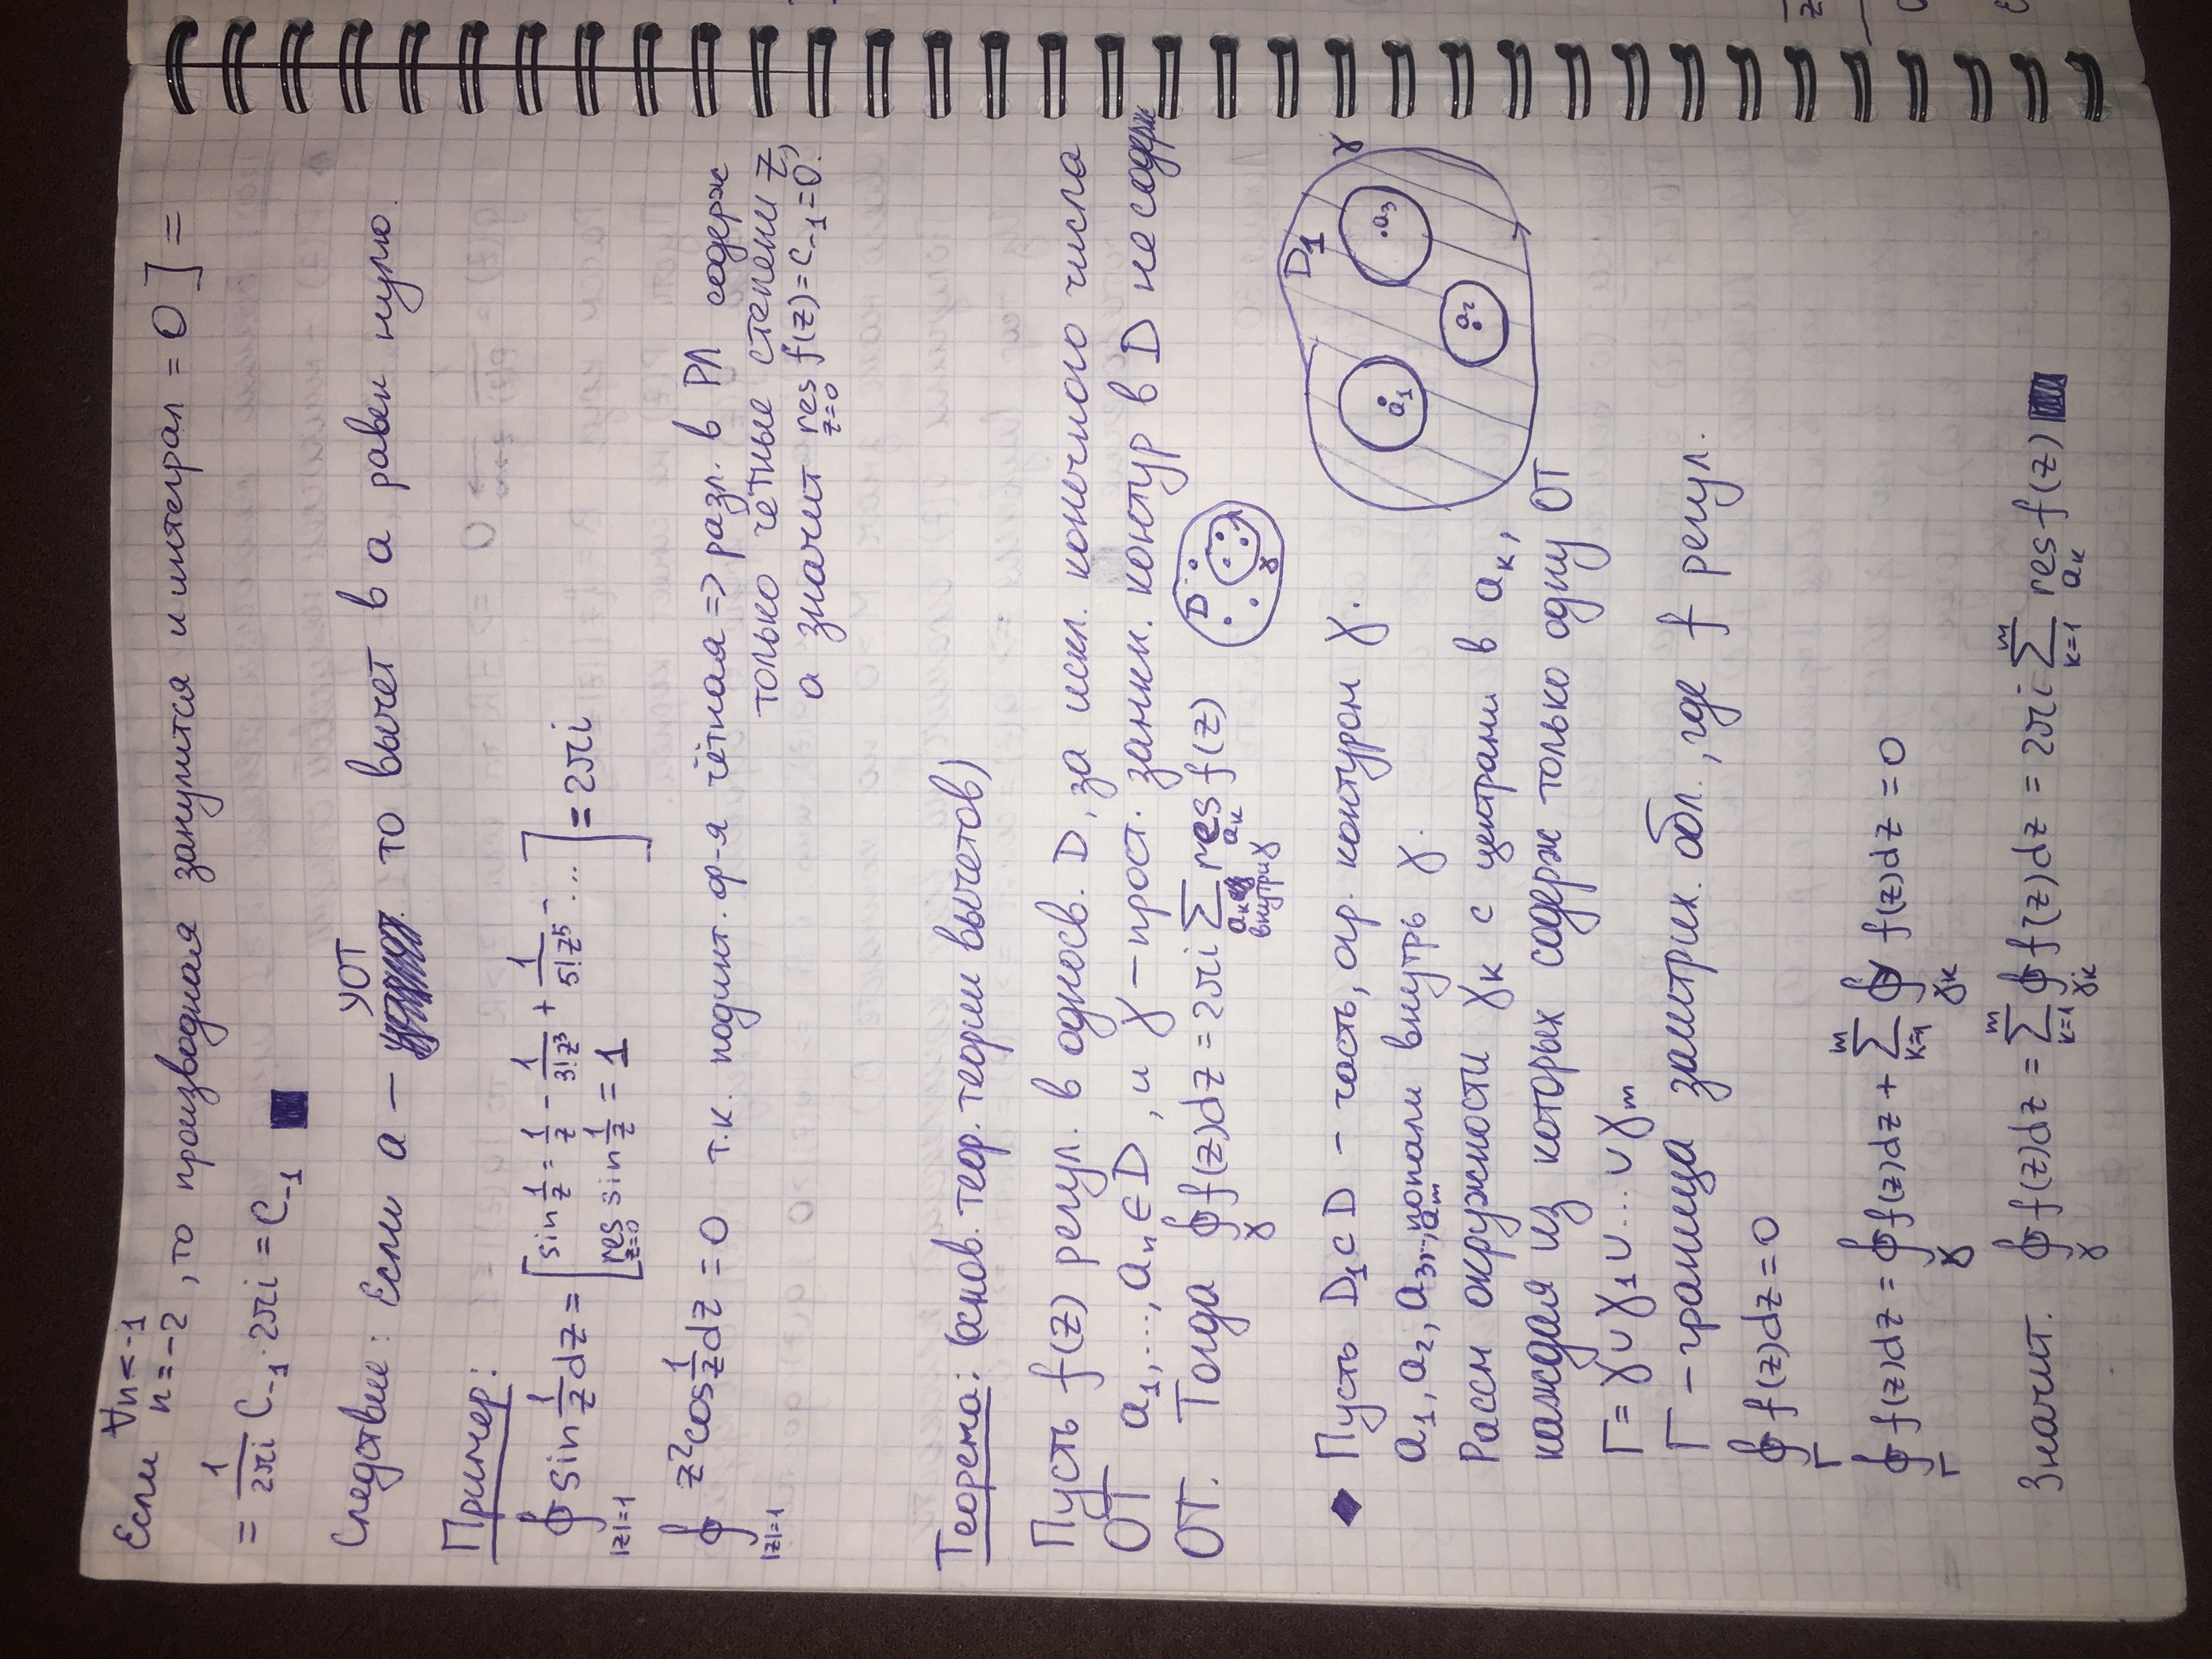 Если ∀n<-1
n=-2, то производная занулится и интеграл = 0 ] =
= 1/2πi C₋₁ · 2πi = C₋₁ ■
Следствие: Если a — УОТ то вычет в a равен нулю.
Пример:
∮ sin 1/z dz = [ sin 1/z = 1/z - 1/3!z³ + 1/5!z⁵ - ...
|z|=1 res sin 1/z = 1 ] = 2πi
z=0
∮ z² cos 1/z dz = 0 т.к. подинт. ф-я чётная => разл. в РЛ содерж
|z|=1 только чётные степени z,
а значит res f(z) = C₋₁ = 0.
z=0
Теорема: (основ. теор. теории вычетов)
Пусть f(z) регул. в односв. D, за искл. конечного числа
ОТ a₁, ..., aₙ ∈ D, и γ — прост. замкн. контур в D не содерж
ОТ. Тогда ∮ f(z)dz = 2πi ∑ res f(z) D
γ aₖ внутри γ aₖ γ
◆ Пусть D₁ ⊂ D – часть, огр. контуром γ. D₁ γ
a₁, a₂, a₃, .., aₘ попали внутрь γ. a₁ a₃
Рассм окружности γₖ с центрами в aₖ, a₂
каждая из которых содерж только одну ОТ
Γ = γ ∪ γ₁ ∪ ... ∪ γₘ
Γ – граница заштрих. обл., где f регул.
∮ f(z)dz = 0
Γ
∮ f(z)dz = ∮ f(z)dz + ∑ₖ₌₁ᵐ ∮ f(z)dz = 0
Γ γ γₖ
Значит. ∮ f(z)dz = ∑ₖ₌₁ᵐ ∮ f(z)dz = 2πi ∑ₖ₌₁ᵐ res f(z) ■
γ γₖ aₖ